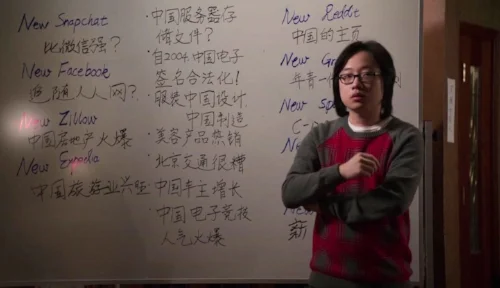 New Snapchat
比微信强?
New Facebook
追随人人网?
New Zillow
中国房地产火爆
New Expedia
中国旅游业兴旺
·中国服务器存
储文件?
·自2004中国电子
签名合法化!
·服装中国设计
中国制造
·美容产品热销
·北京交通很糟
·中国车主增长
·中国电子竞技
人气火爆
New Reddit
中国的主页
New
年青一
New
New
新